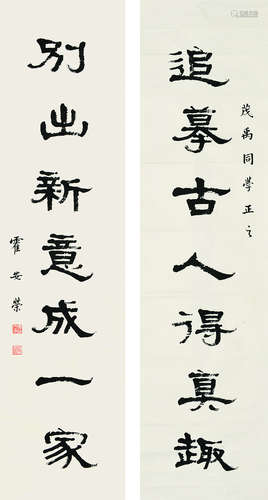 茂禹同學正之
追摹古人得真趣
別出新意成一家
霍安榮